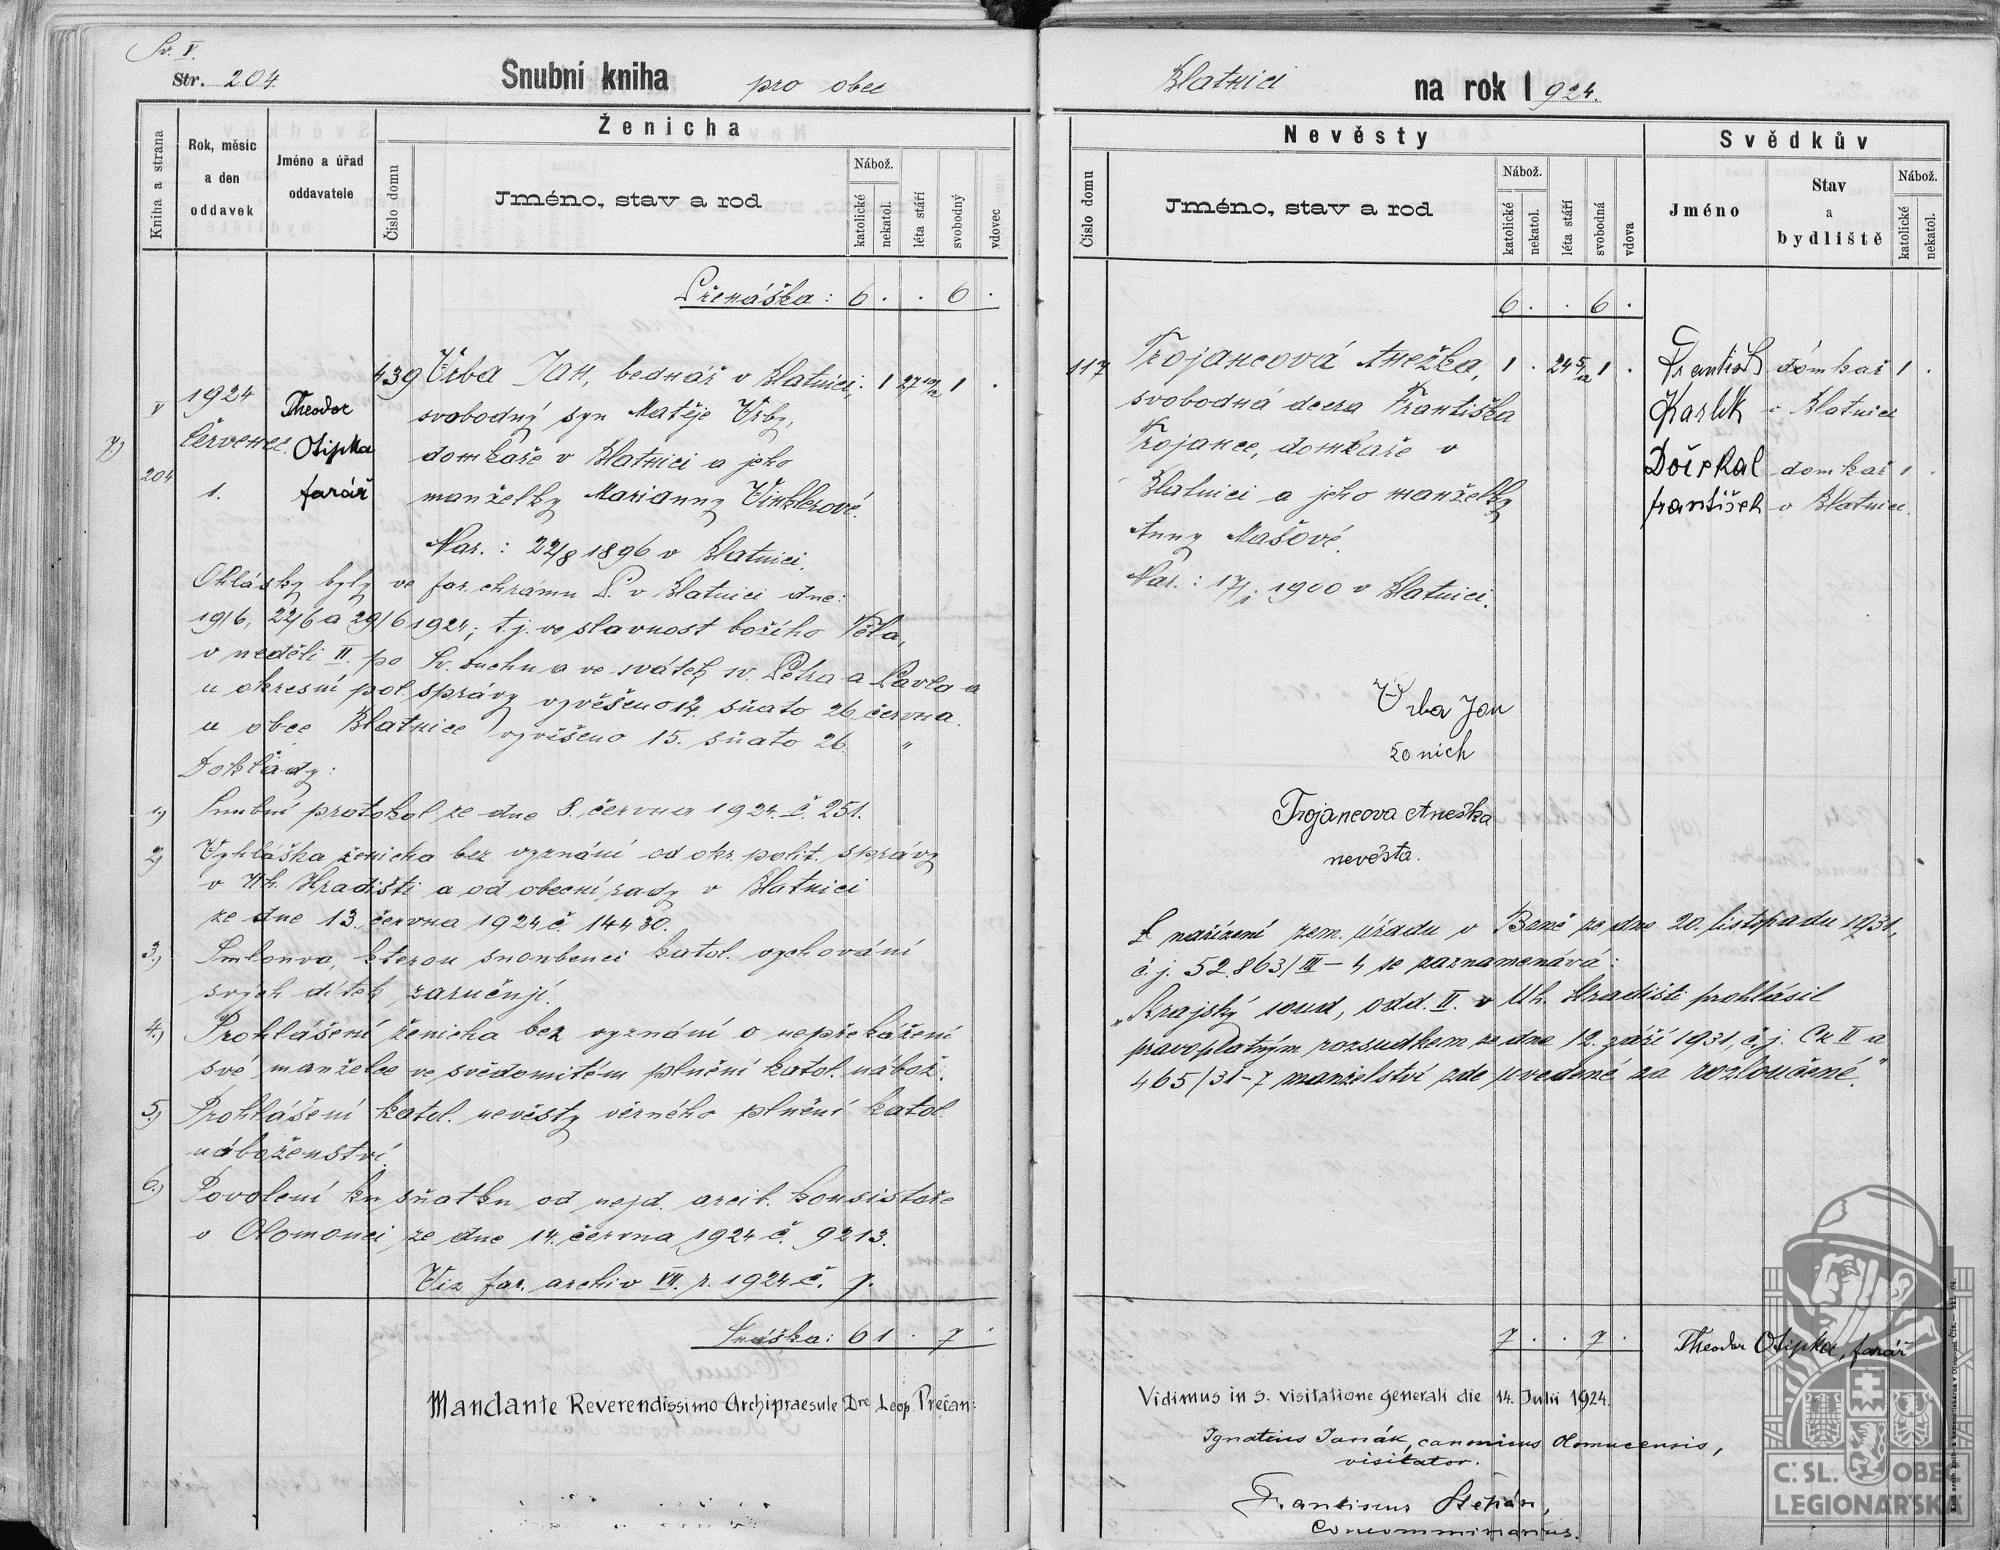 Sv. V.
Str. 204.
Snubní kniha pro obec
Blatnici na rok 1924.
Kniha a strana
Rok, měsíc a den oddavek
Jméno a úřad oddavatele
Ženicha
Číslo domu
Jméno, stav a rod
Nábož.
katolické
nekatol.
léta stáří
svobodný
vdovec
Nevěsty
Číslo domu
Jméno, stav a rod
Nábož.
katolické
nekatol.
léta stáří
svobodná
vdova
Svědkův
Jméno
Stav a bydliště
Nábož.
katolické
nekatol.
Přenáška: 6 . . 6 .
6 . . 6 .
7)
V
204
1924
červenec
1.
Theodor
Osipka
farář
439 Vrba Jan, bednář v Blatnici, 1 27 10/12 1 .
svobodný syn Matěje Vrby,
domkaře v Blatnici a jeho
manželky Marianny Vinklerové.
Nar.: 22/8 1896 v Blatnici.
Ohlášky byly ve far. chrámu P. v Blatnici dne:
19/6, 22/6 a 29/6 1924; t.j. ve slavnost božího Těla,
v neděli II. po Sv. Duchu a ve svátek sv. Petra a Pavla a
u okresní pol. správy vyvěšeno 14. sňato 26. června.
u obce Blatnice vyvěšeno 15. sňato 26. "
Doklady:
1) Snubní protokol ze dne 8. června 1924 č. 251.
2) Vyhláška ženicha bez vyznání od okr. polit. správy
v Uh. Hradišti a od obecní rady v Blatnici
ze dne 13. června 1924 č. 14430.
3.) Smlouva, kterou snoubenci katol. vychování
svých dítek zaručují.
4.) Prohlášení ženicha bez vyznání o nepřekážení
své manželce ve svědomitém plnění katol. nábož.
5.) Prohlášení katol. nevěsty věrného plnění katol.
náboženství.
6.) Povolení ku sňatku od nejd. arcib. konsistoře
v Olomouci ze dne 14. června 1924 č. 9213.
Viz far. archiv VII. r. 1924 č. 7.
Snáška: 6 1 . 7 .
Mandante Reverendissimo Archipraesule Dre Leop. Prečan:
117 Trojancová Anežka, 1 . 24 5/12 1 .
svobodná dcera Františka
Trojance, domkaře v
Blatnici a jeho manželky
Anny Mašové.
Nar.: 17/1. 1900 v Blatnici.
František domkař 1 .
Karlík v Blatnici
Dořekal domkař 1 .
František v Blatnici.
Vrba Jan
ženich
Trojancova Anežka
nevěsta.
Z nařízení zem. úřadu v Brně ze dne 20. listopadu 1931,
č.j. 52.863/III-4 se zaznamenává:
„Krajský soud, odd. II. v Uh. Hradišti prohlásil
pravoplatným rozsudkem ze dne 12. září 1931, č.j. Ck II a
465/31-7 manželství zde uvedené za rozloučené."
7 . . 7 .
Theodor Osipka, farář
Vidimus in s. visitatione generali die 14. Julii 1924.
Ignatius Janák, canonicus Olomucensis,
visitator.
Franciscus Štěpán,
ČSL. OBEC
LEGIONÁŘSKÁ